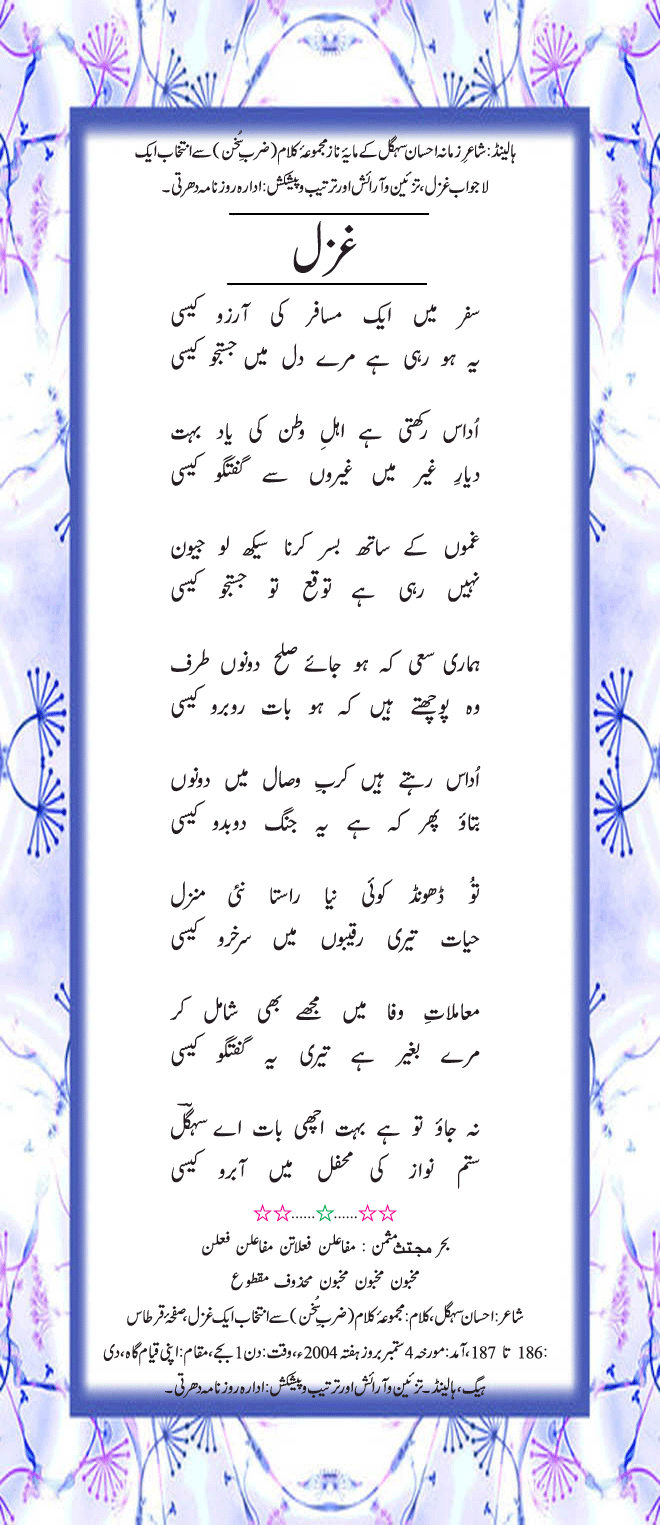 ہالینڈ: شاعرِ زمانہ احسان سہگل کے مایۂ ناز مجموعۂ کلام (ضربِ سُخن) سے انتخاب ایک
لاجواب غزل، تزئین و آرائش اور ترتیب و پیشکش: ادارہ روزنامہ دھرتی۔
غزل
سفر میں ایک مسافر کی آرزو کیسی
یہ ہو رہی ہے مرے دل میں جستجو کیسی
اُداس رکھتی ہے اہلِ وطن کی یاد بہت
دیارِ غیر میں غیروں سے گفتگو کیسی
غموں کے ساتھ بسر کرنا سیکھ لو جیون
نہیں رہی ہے توقع تو جستجو کیسی
ہماری سعی کہ ہو جائے صلح دونوں طرف
وہ پوچھتے ہیں کہ ہو بات روبرو کیسی
اُداس رہتے ہیں کربِ وصال میں دونوں
بتاؤ پھر کہ ہے یہ جنگ دوبدو کیسی
تُو ڈھونڈ کوئی نیا راستا نئی منزل
حیات تیری رقیبوں میں سرخرو کیسی
معاملاتِ وفا میں مجھے بھی شامل کر
مرے بغیر ہے تیری یہ گفتگو کیسی
نہ جاؤ تو ہے بہت اچھی بات اے سہگلؔ
ستم نواز کی محفل میں آبرو کیسی
☆☆......☆......☆☆
بحر مجتث مثمن : مفاعلن فعلاتن مفاعلن فعلن
مخبون مخبون مخبون محذوف مقطوع
شاعر: احسان سہگل، کلام: مجموعۂ کلام (ضربِ سُخن) سے انتخاب ایک غزل، صفحۂ قرطاس
:186 تا 187، آمد: مورخہ 4 ستمبر بروز ہفتہ 2004ء، وقت: دن 1 بجے، مقام: اپنی قیام گاہ، دی
ہیگ، ہالینڈ۔ تزئین و آرائش اور ترتیب و پیشکش: ادارہ روزنامہ دھرتی۔